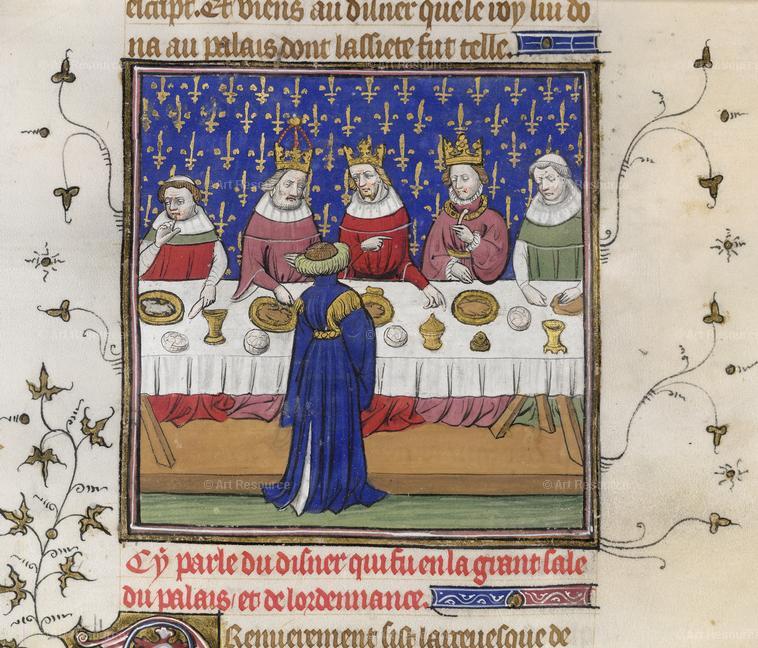 escript. Et viens au disner que le roy lui do
na au palais dont lassiete fut telle.
Cy parle du disner qui fu en la grant sale
du palais, et de lordennance.
Renuierment sist larceuesque de
© Art Resource